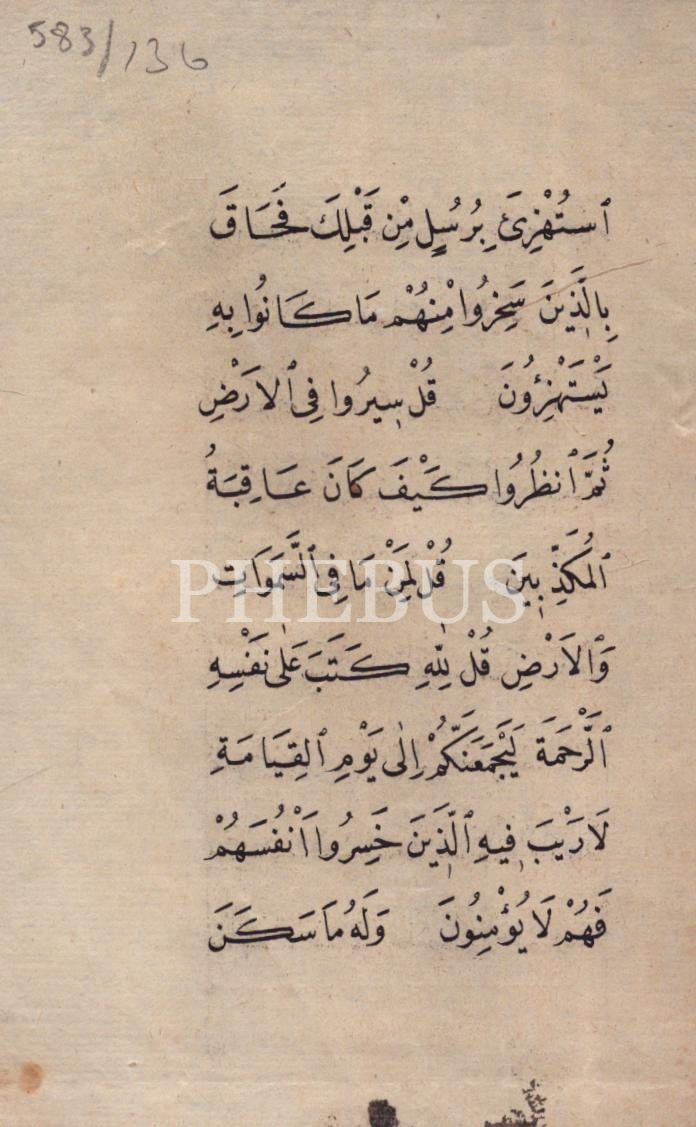 583/136
ٱستُهْزِئَ بِرُسُلٍ مِّن قَبْلِكَ فَحَاقَ
بِالَّذِينَ سَخِرُوا مِنْهُمْ مَا كَانُوا بِهِ
يَسْتَهْزِؤُنَ قُلْ سِيرُوا فِى ٱلارَْضِ
ثُمَّ ٱنظُرُوا كَيْفَ كَانَ عَاقِبَةُ
ٱلمُكَذِّبِينَ قُلْ لِمَنْ مَا فِى ٱلسَّمَوَاتِ
وَٱلارَْضِ قُلْ لِلّٰهِ كَتَبَ عَلٰى نَفْسِهِ
ٱلرَّحْمَةَ لَيَجْمَعَنَّكُمْ اِلٰى يَوْمِ ٱلقِيَامَةِ
لَا رَيْبَ فِيهِ ٱلَّذِينَ خَسِرُوا اَنْفُسَهُمْ
فَهُمْ لَا يُؤْمِنُونَ وَلَهُ مَا سَكَنَ
PHEBUS